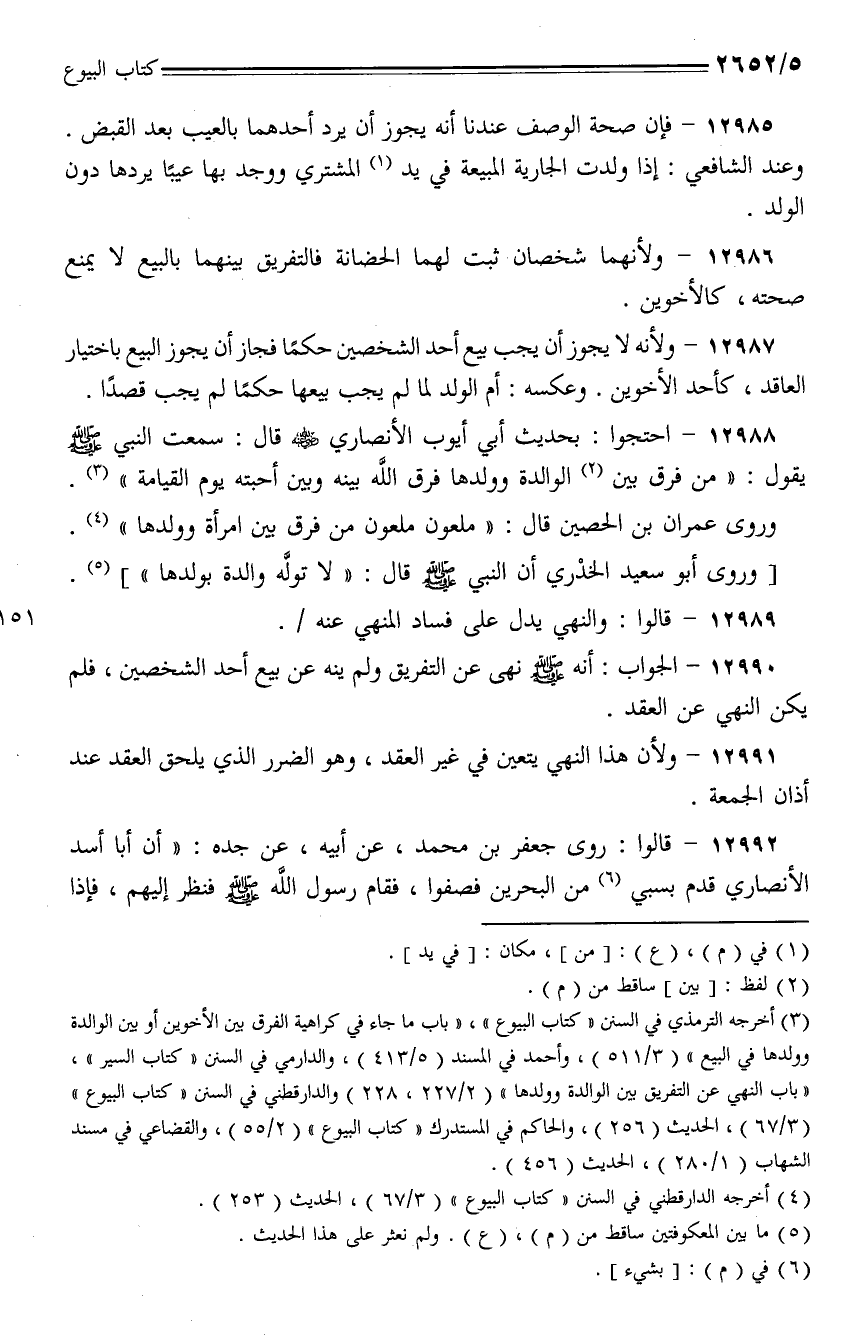 ٢٦٥٢/٥ كتاب البيوع
١٢٩٨٥ - فإن صحة الوصف عندنا أنه يجوز أن يرد أحدهما بالعيب بعد القبض .
وعند الشافعي : إذا ولدت الجارية المبيعة في يد (١) المشتري ووجد بها عيبًا يردها دون
الولد .
١٢٩٨٦ - ولأنهما شخصان ثبت لهما الحضانة فالتفريق بينهما بالبيع لا يمنع
صحته ، كالأخوين .
١٢٩٨٧ - ولأنه لا يجوز أن يجب بيع أحد الشخصين حكمًا فجاز أن يجوز البيع باختيار
العاقد ، كأحد الأخوين . وعكسه : أم الولد لما لم يجب بيعها حكمًا لم يجب قصدًا .
١٢٩٨٨ - احتجوا : بحديث أبي أيوب الأنصاري ﷺ قال : سمعت النبي ﷺ
يقول : « من فرق بين (٢) الوالدة وولدها فرق اللَّه بينه وبين أحبته يوم القيامة » (٣) .
وروى عمران بن الحصين قال : « ملعون ملعون من فرق بين امرأة وولدها » (٤) .
[ وروى أبو سعيد الخدْري أن النبي ﷺ قال : « لا تولَّه والدة بولدها » ] (٥) .
١٢٩٨٩ - قالوا : والنهي يدل على فساد المنهي عنه / .
١٥١
١٢٩٩٠ - الجواب : أنه ﷺ نهى عن التفريق ولم ينه عن بيع أحد الشخصين ، فلم
يكن النهي عن العقد .
١٢٩٩١ - ولأن هذا النهي يتعين في غير العقد ، وهو الضرر الذي يلحق العقد عند
أذان الجمعة .
١٢٩٩٢ - قالوا : روى جعفر بن محمد ، عن أبيه ، عن جده : « أن أبا أسد
الأنصاري قدم بسبي (٦) من البحرين فصفوا ، فقام رسول اللَّه ﷺ فنظر إليهم ، فإذا
(١) في ( م ) ، ( ع ) : [ من ] ، مكان : [ في يد ] .
(٢) لفظ : [ بين ] ساقط من ( م ) .
(٣) أخرجه الترمذي في السنن « كتاب البيوع » ، « باب ما جاء في كراهية الفرق بين الأخوين أو بين الوالدة
وولدها في البيع » ( ٥١١/٣ ) ، وأحمد في المسند ( ٤١٣/٥ ) ، والدارمي في السنن « كتاب السير » ،
« باب النهي عن التفريق بين الوالدة وولدها » ( ٢٢٧/٢ ، ٢٢٨ ) والدارقطني في السنن « كتاب البيوع »
( ٦٧/٣ ) ، الحديث ( ٢٥٦ ) ، والحاكم في المستدرك « كتاب البيوع » ( ٥٥/٢ ) ، والقضاعي في مسند
الشهاب ( ٢٨٠/١ ) ، الحديث ( ٤٥٦ ) .
(٤) أخرجه الدارقطني في السنن « كتاب البيوع » ( ٦٧/٣ ) ، الحديث ( ٢٥٣ ) .
(٥) ما بين المعكوفتين ساقط من ( م ) ، ( ع ) . ولم نعثر على هذا الحديث .
(٦) في ( م ) : [ بشيء ] .